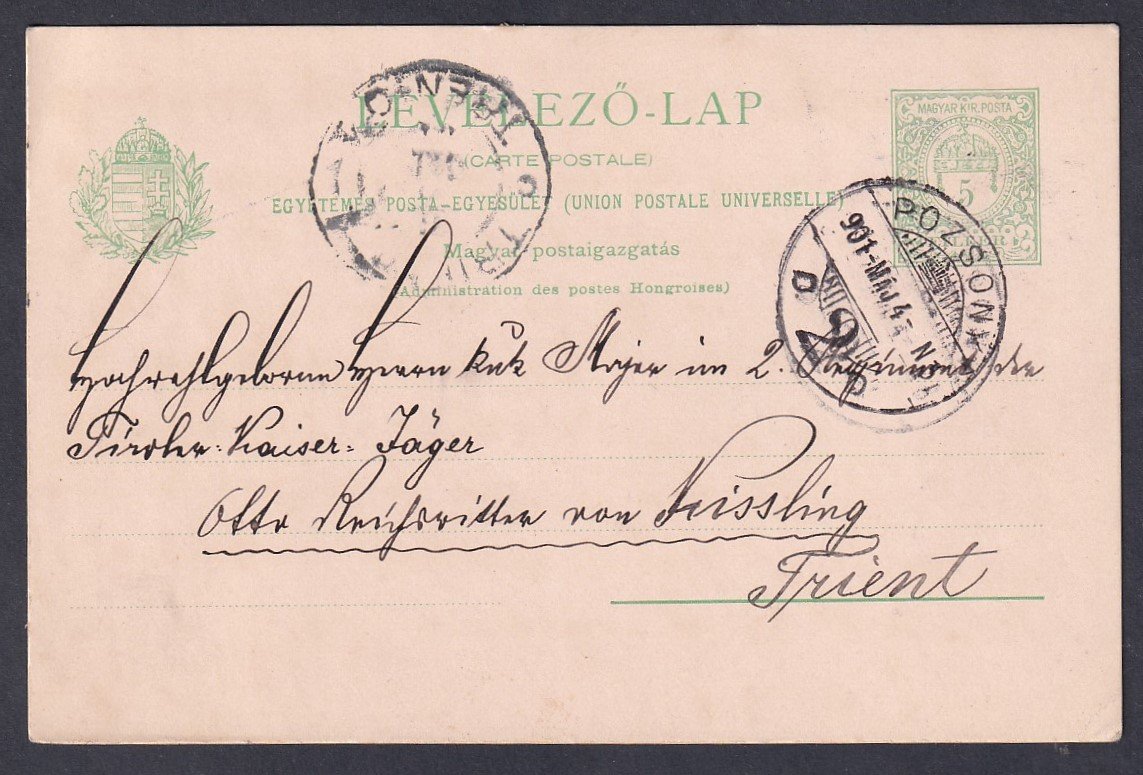 LEVELEZŐ-LAP
(CARTE POSTALE)
EGYETEMES POSTA-EGYESÜLET (UNION POSTALE UNIVERSELLE)
Magyar postaigazgatás
(Administration des postes Hongroises)
MAGYAR KIR. POSTA
5
POZSONY
901-MÁJ 4-
D
TRIENT
Hochwohlgeboren Herrn kuk Major im 2. Regiment der
Tiroler-Kaiser-Jäger
Otto Reichsritter von
Trient